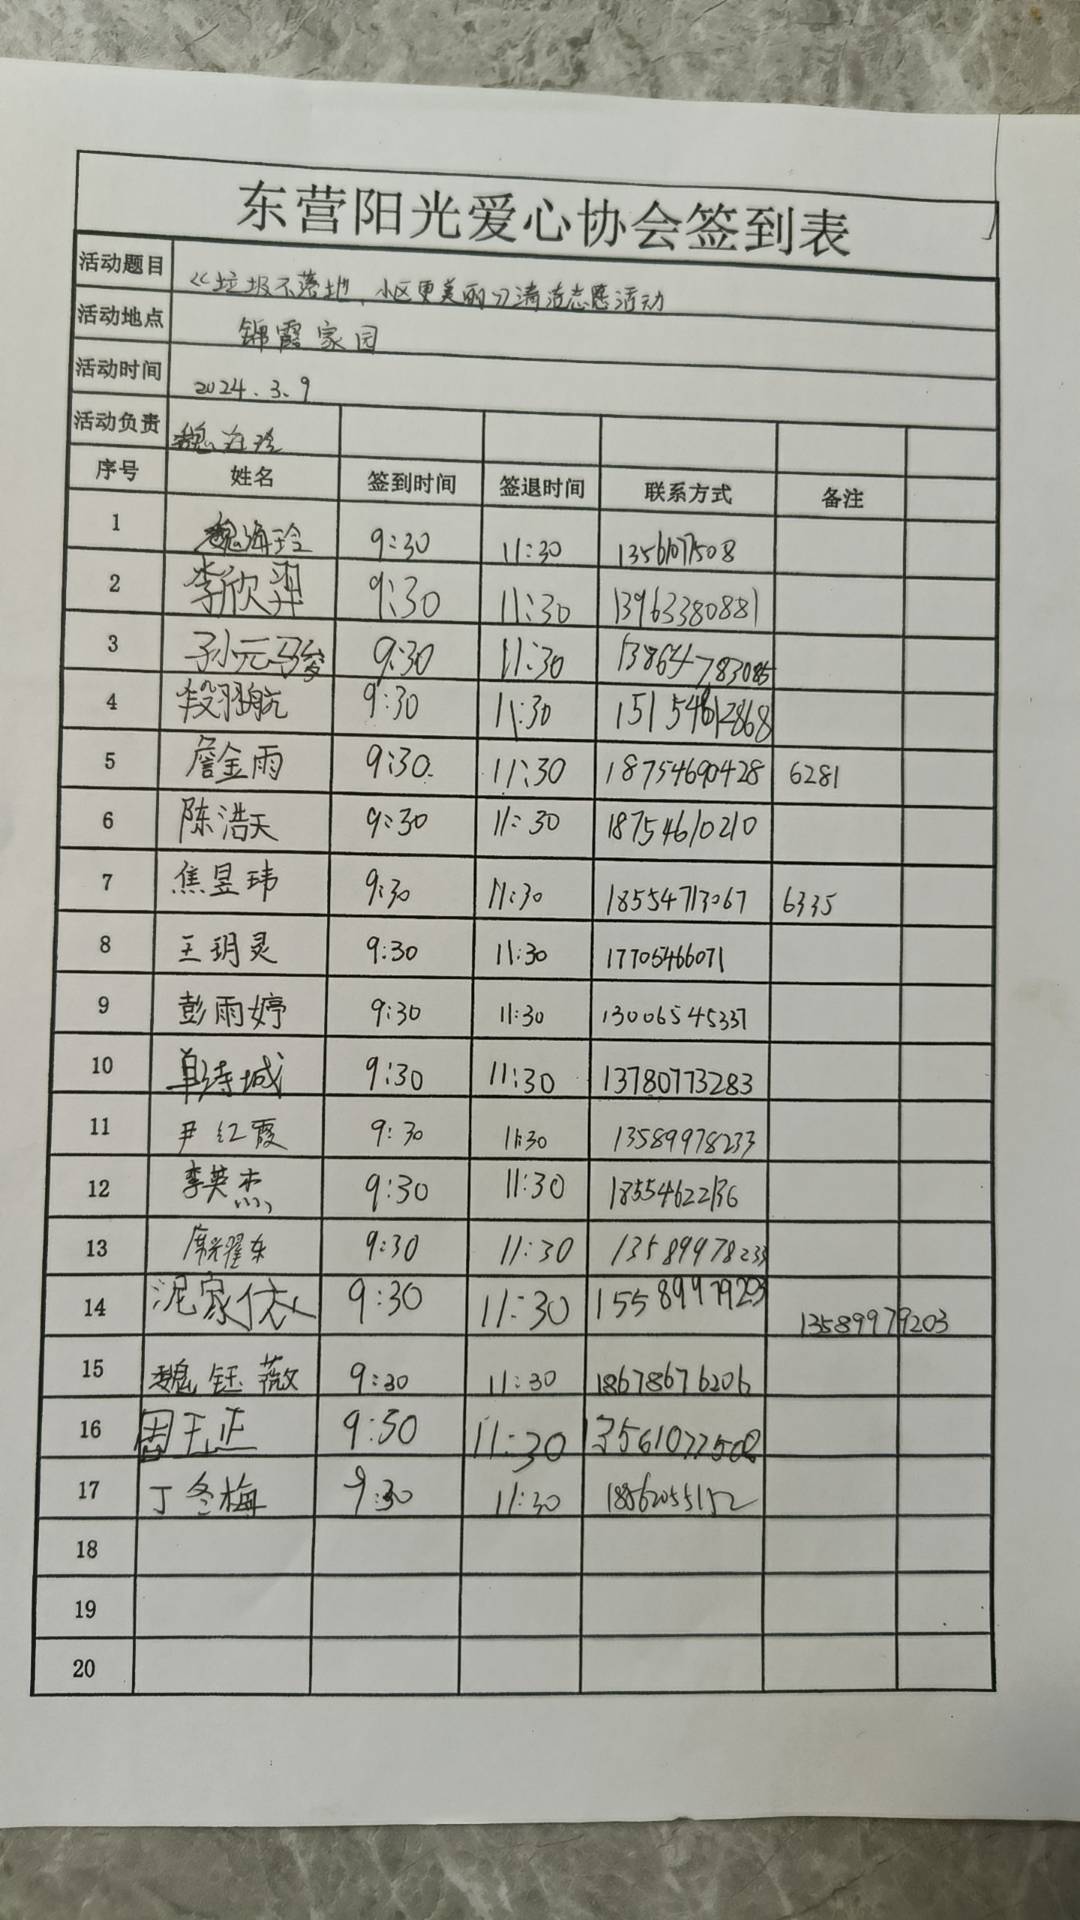 东营阳光爱心协会签到表
活动题目 《垃圾不落地、小区更美丽》清洁志愿活动
活动地点 锦霞家园
活动时间 2024.3.9
活动负责 魏海玲
序号 姓名 签到时间 签退时间 联系方式 备注
1 魏海玲 9:30 11:30
2 李欣羿 9:30 11:30 13963380881
3 孙元骏 9:30 11:30 13864783085
4 段羽航 9:30 11:30 15154612868
5 詹金雨 9:30 11:30 18754690428 6281
6 陈浩天 9:30 11:30 18754610210
7 焦昱玮 9:30 11:30 18554713067 6335
8 王玥灵 9:30 11:30 17705466071
9 彭雨婷 9:30 11:30 13006545337
10 单诗城 9:30 11:30 13780773283
11 尹红霞 9:30 11:30 13589978233
12 李英杰 9:30 11:30 18554622136
13 9:30 11:30 13589978233
14 泥家依 9:30 11:30 15589979203 13589979203
15 魏钰薇 9:30 11:30 18678676206
16 周玉正 9:30 11:30 13561077508
17 丁冬梅 9:30 11:30 18562055152
18
19
20